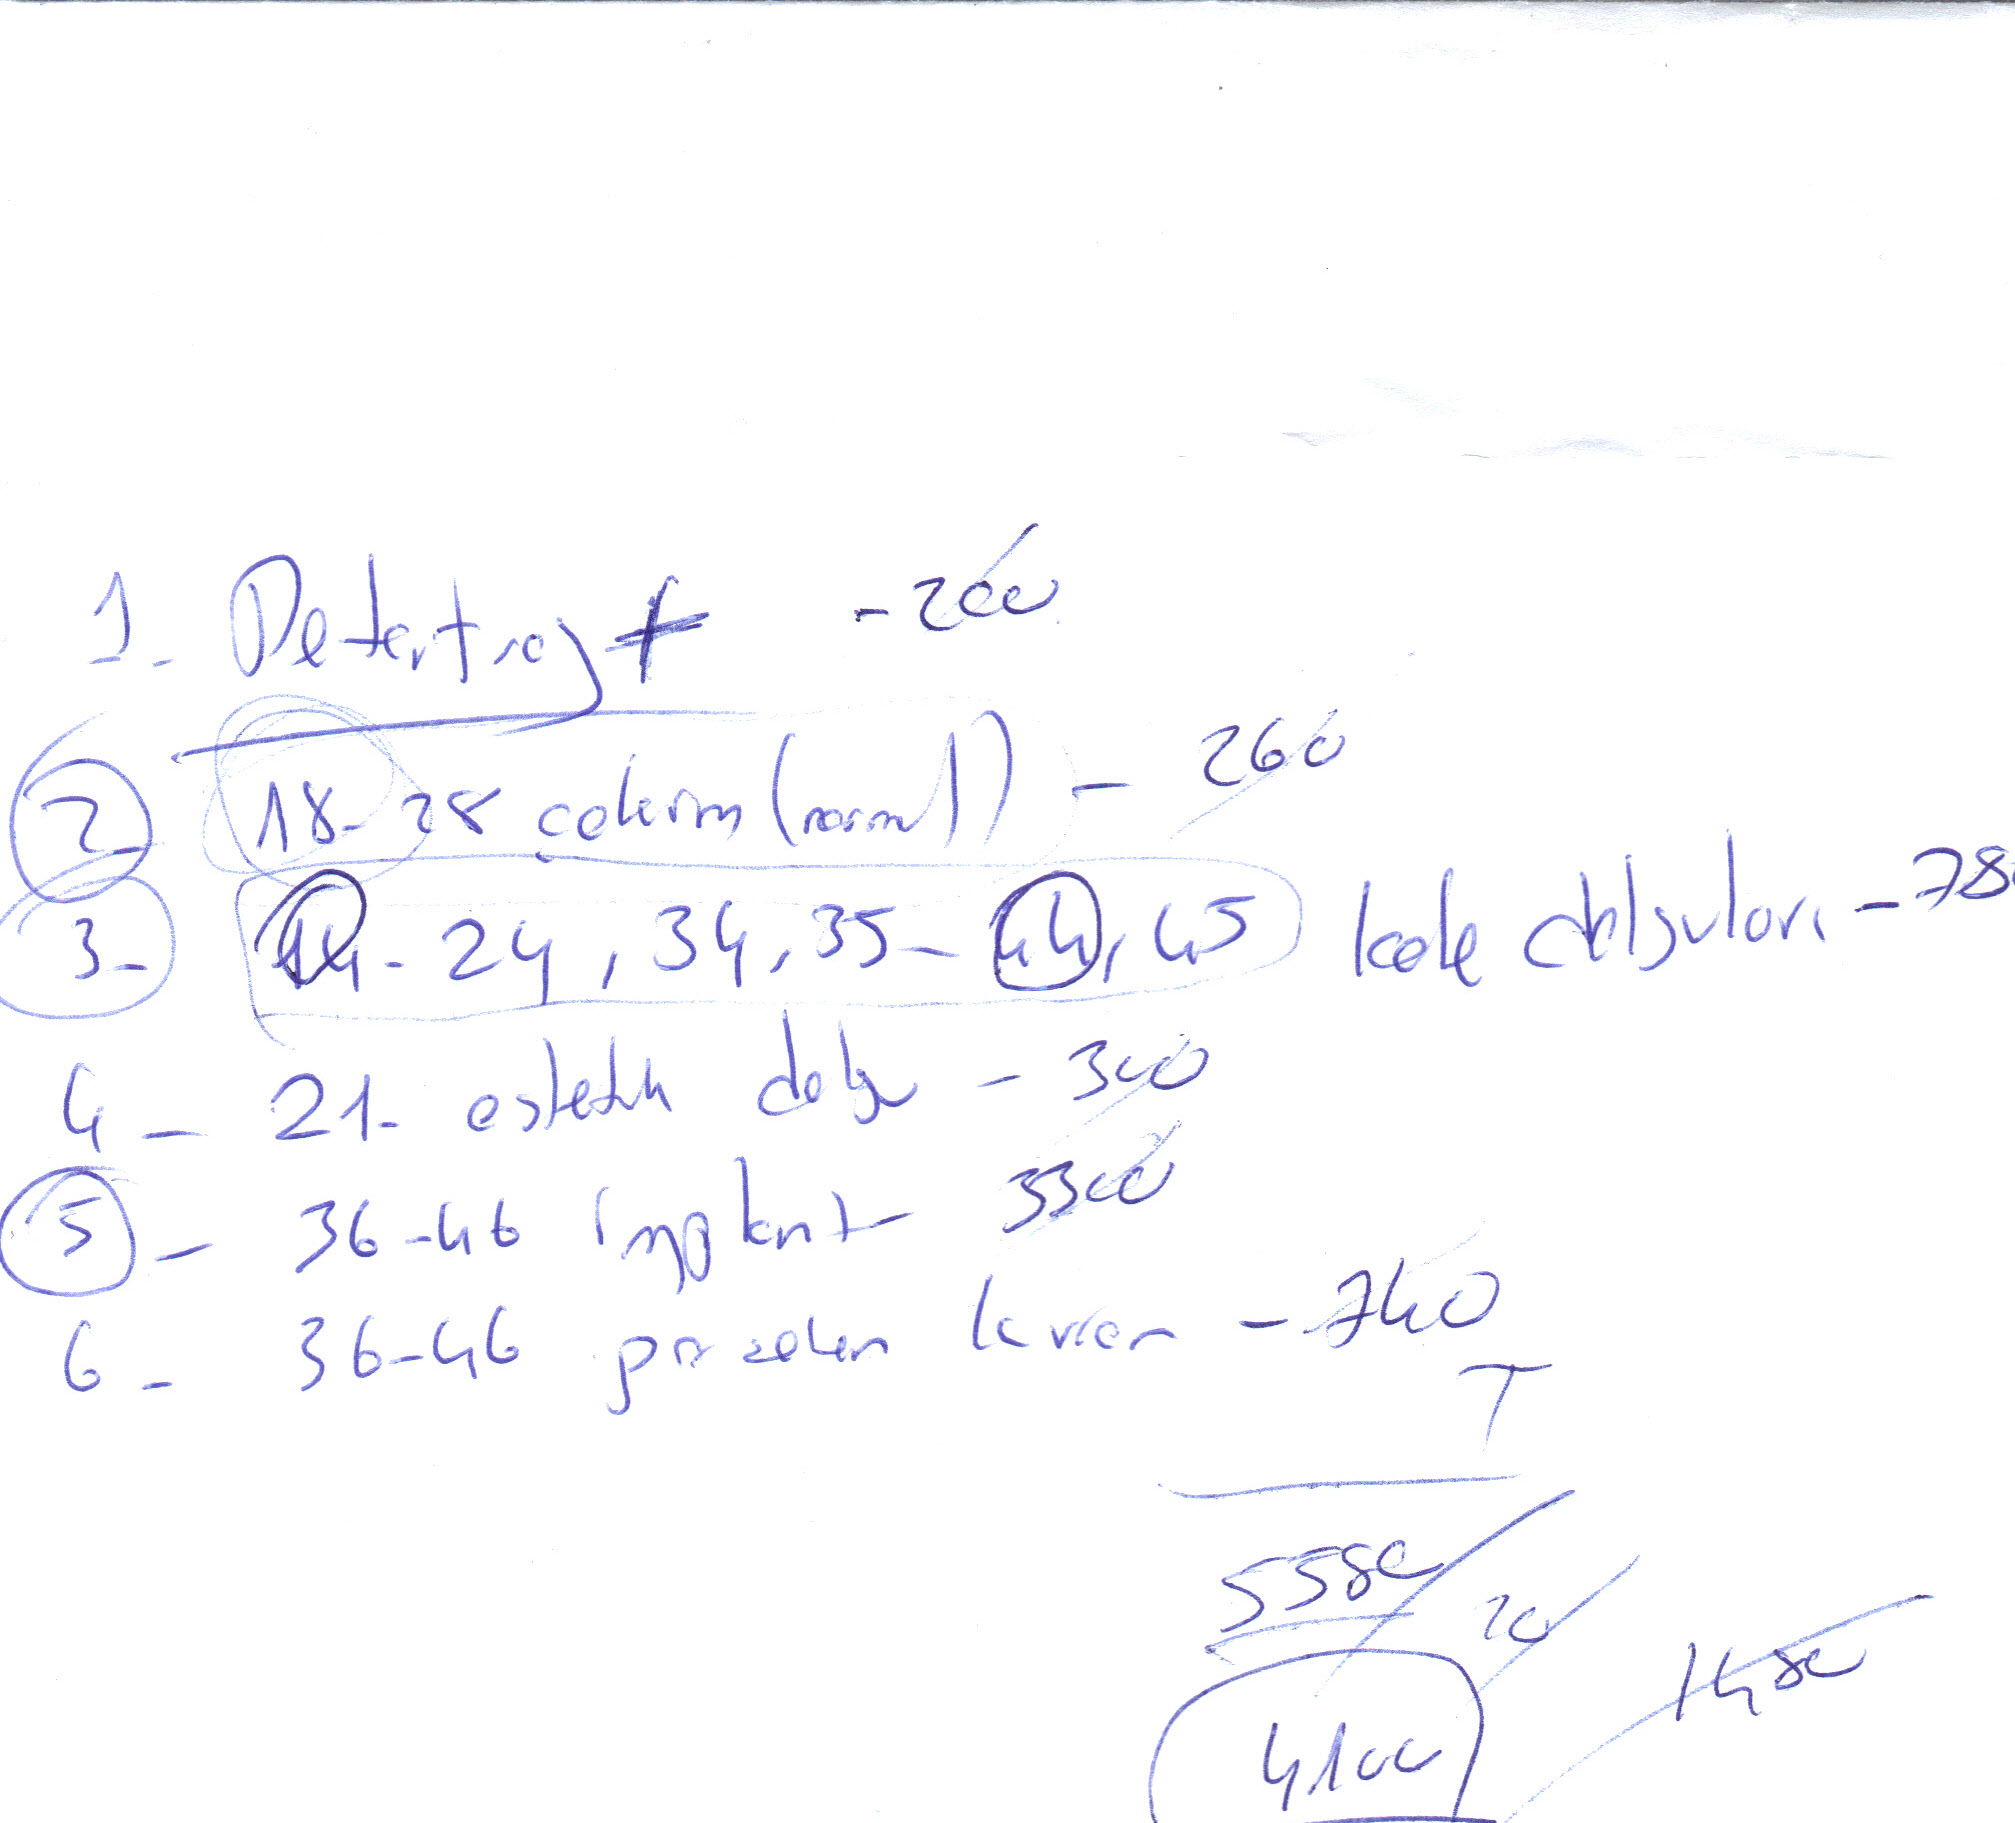 1- Detertraj + - 200
2- 18-28 çekim (normal) - 260
3- 14-24, 34, 35-44, 45 kole dolguları - 78
4- 21- estetik dolgu - 300
5- 36-46 implant - 3300
6- 36-46 porselen kuron - 740
T
5580
20
1480
4100